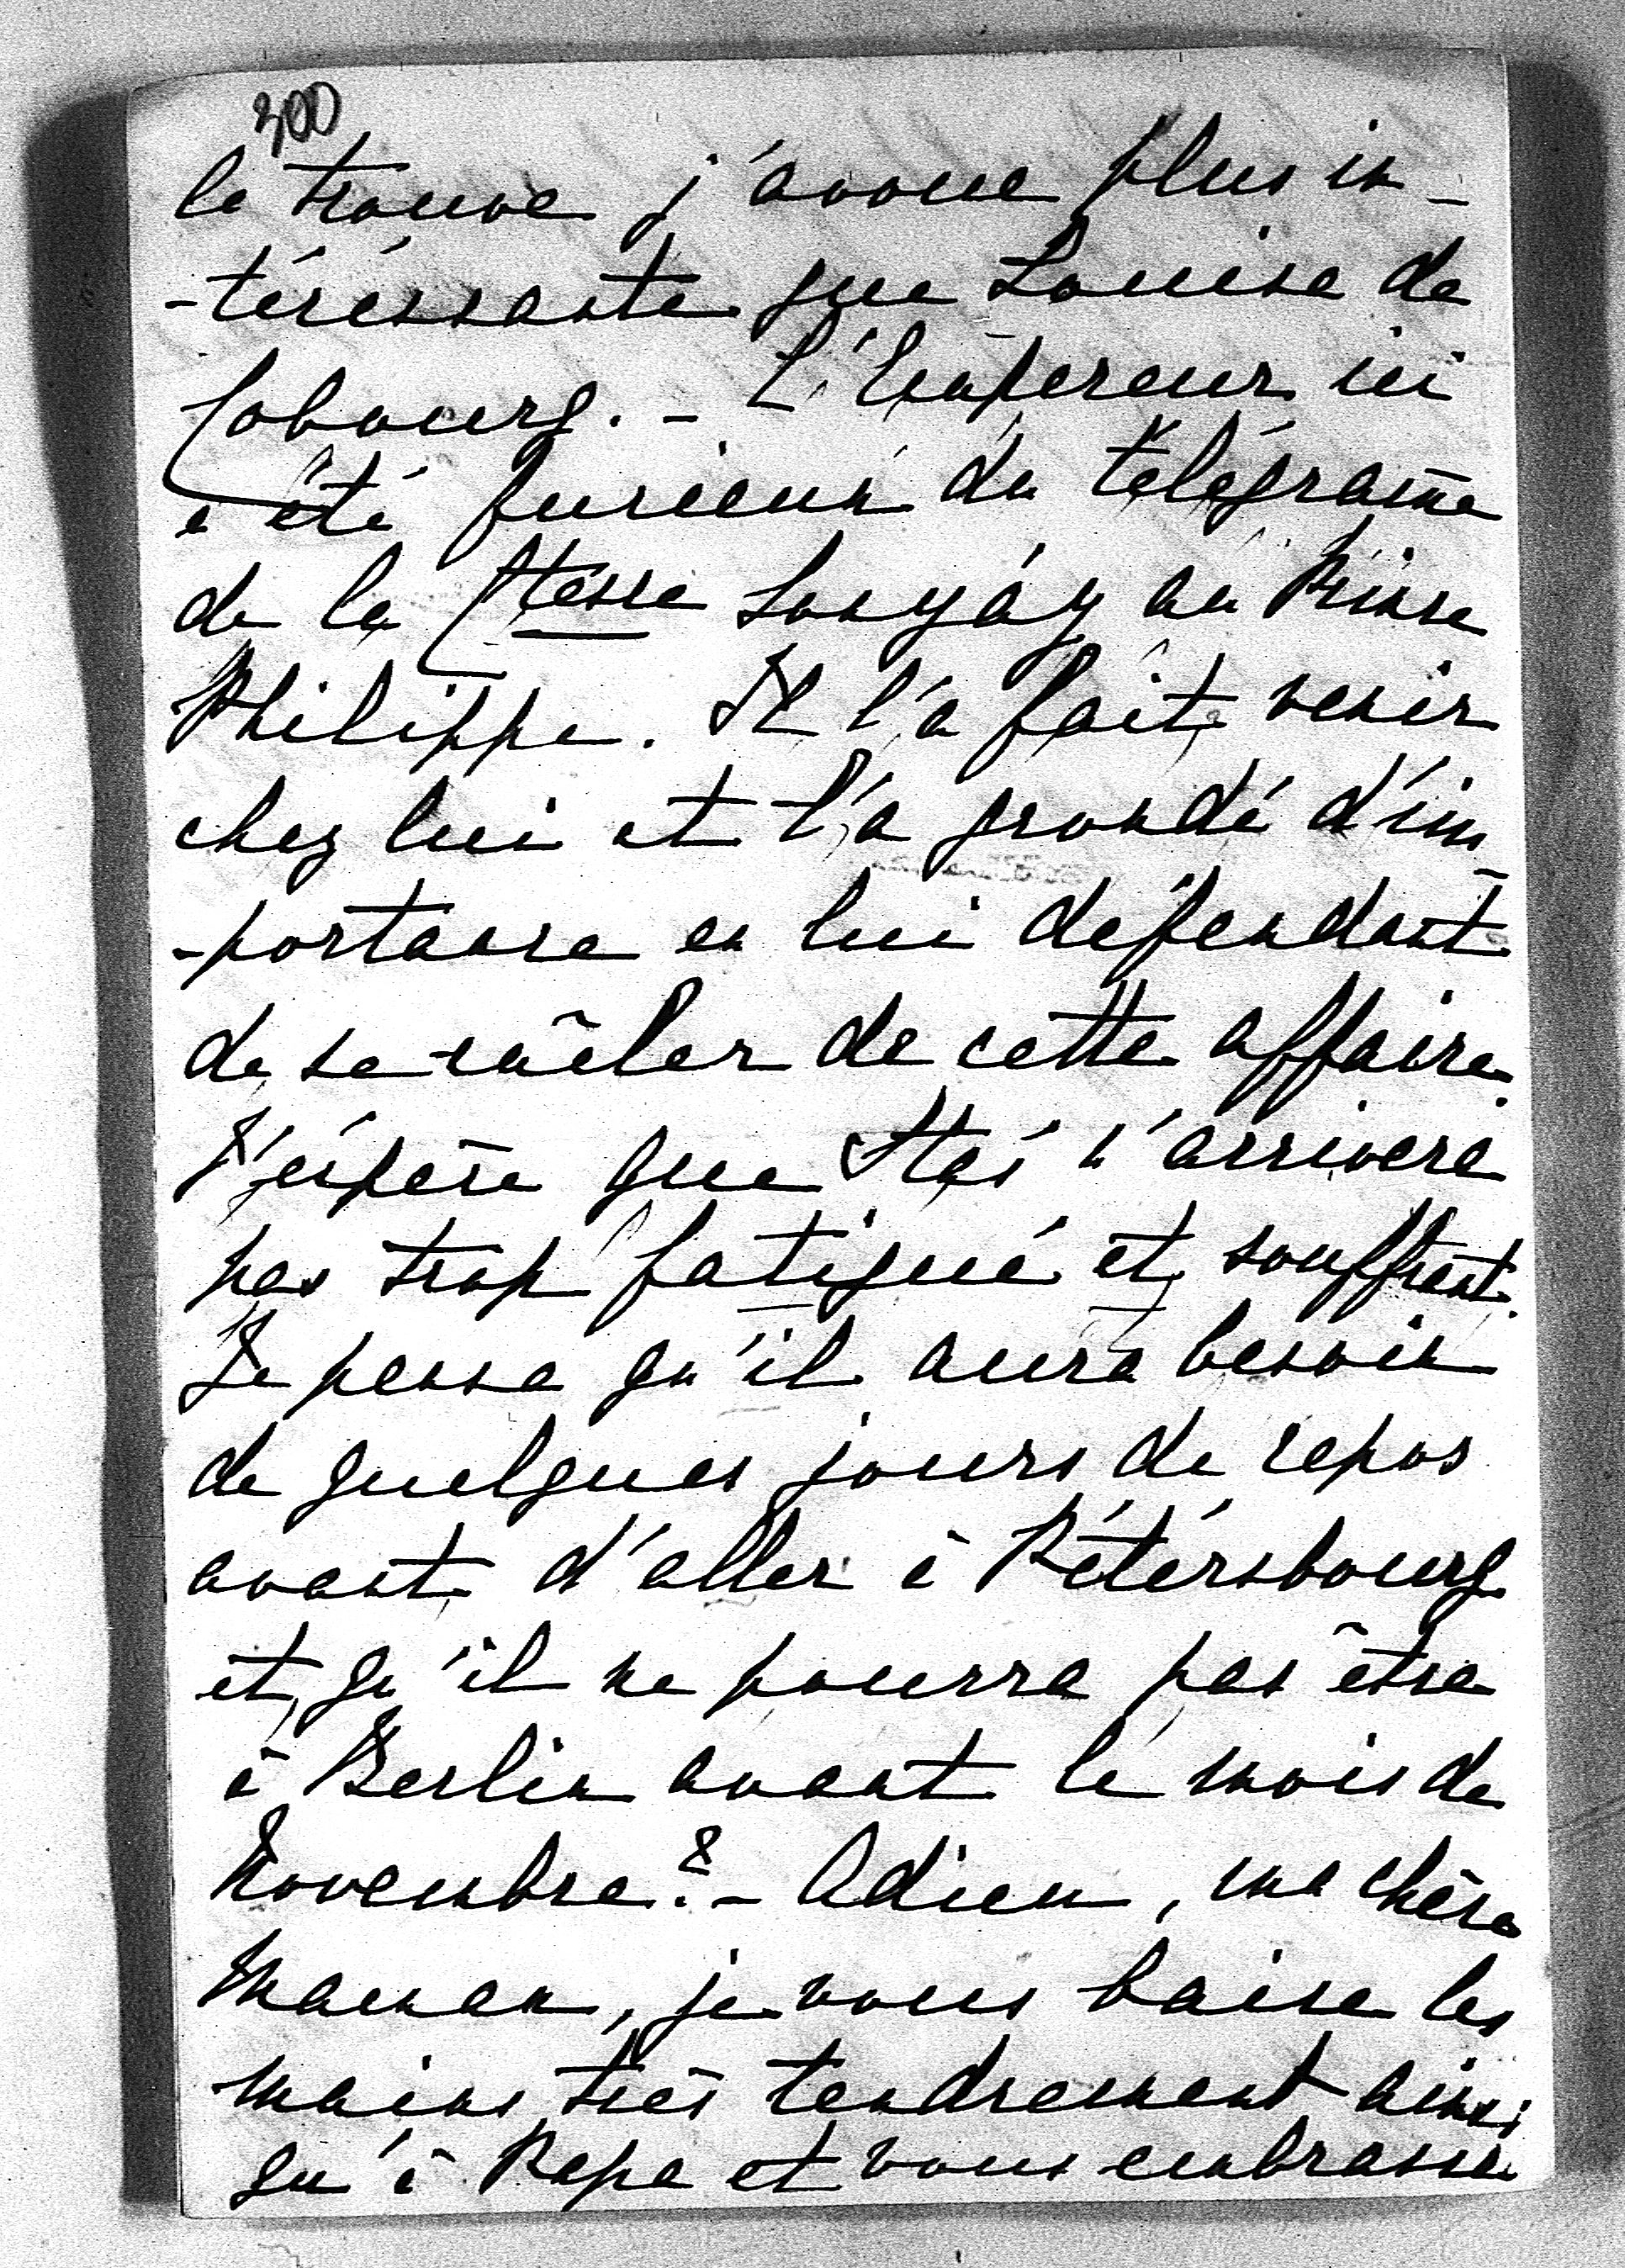 300
la trouve j'avoue plus in-
-téréssante que Louise de
Cobourg. - L'Empereur ici
a été furieux du télégrame
de la Ctesse Lonyáy au Prince
Philippe. Il l'a fait venir
chez lui et l'a grondé d'im-
-portance en lui défendant
de se mêler de cette affaire.
J'éspère que Stas n'arrivera
pas trop fatigué et souffrant.
Je pense qu'il aura besoin
de quelques jours de repos
avant d'aller à Pétérsbourg
et qu'il ne pourra pas être
à Berlin avant le mois de
Novembre? - Adieu, ma chère
Maman, je vous baise les
mains très tendrement ainsi
qu'à Papa et vous embrasse